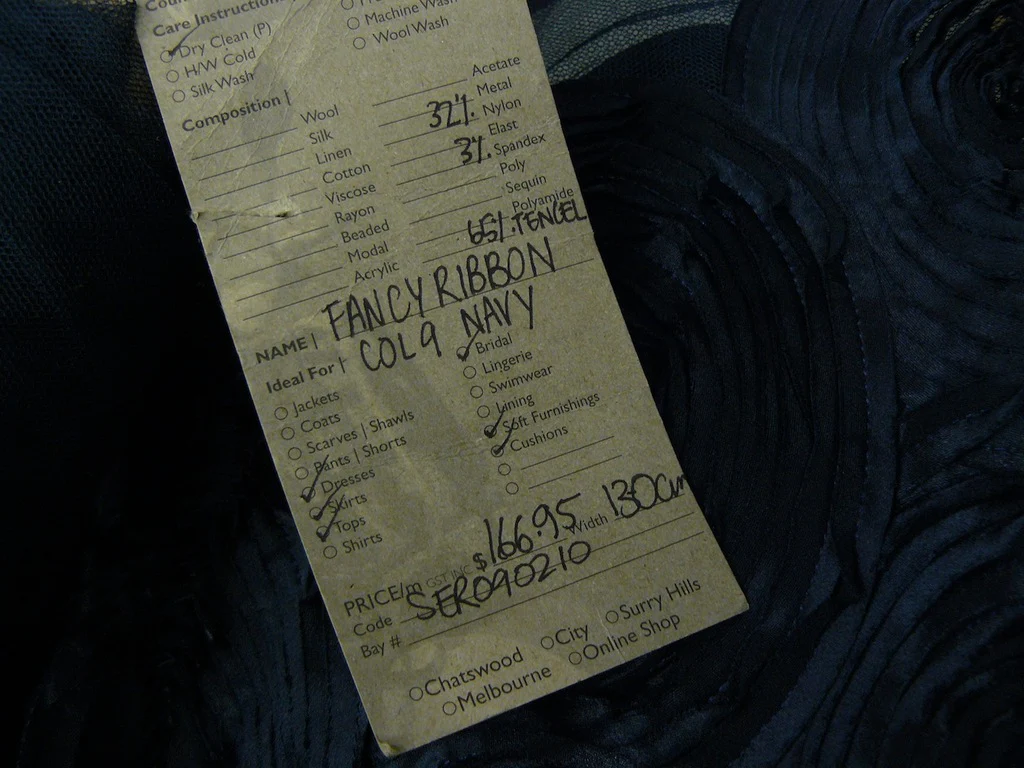 Care Instruction
Dry Clean (P)
H/W Cold
Silk Wash
Machine Wash
Wool Wash
Composition |
Wool
Silk
Linen
Cotton
Viscose
Rayon
Beaded
Modal
Acrylic
Acetate
Metal
32%. Nylon
Elast
3%. Spandex
Poly
Sequin
Polyamide
65%.TENCEL
NAME | FANCY RIBBON
Ideal For | COL 9 NAVY
Jackets
Coats
Scarves | Shawls
Pants | Shorts
Dresses
Skirts
Tops
Shirts
Bridal
Lingerie
Swimwear
Lining
Soft Furnishings
Cushions
PRICE/m GST INC $166.95 Width 130cm
Code SER090210
Bay #
Chatswood City Surry Hills
Melbourne Online Shop